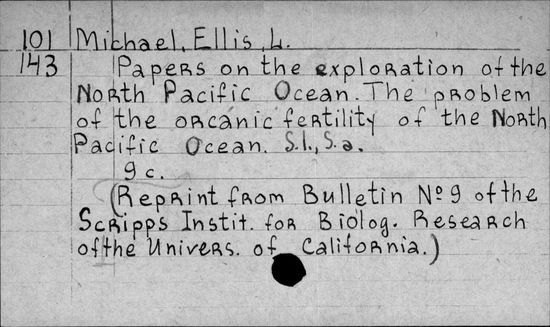 101 Michael, Ellis, L.
143 Papers on the exploration of the
North Pacific Ocean. The problem
of the orcanic fertility of the North
Pacific Ocean. S.l., S.a.
9 c.
(Reprint from Bulletin № 9 of the
Scripps Instit. for Biolog. Research
of the Univers. of California.)